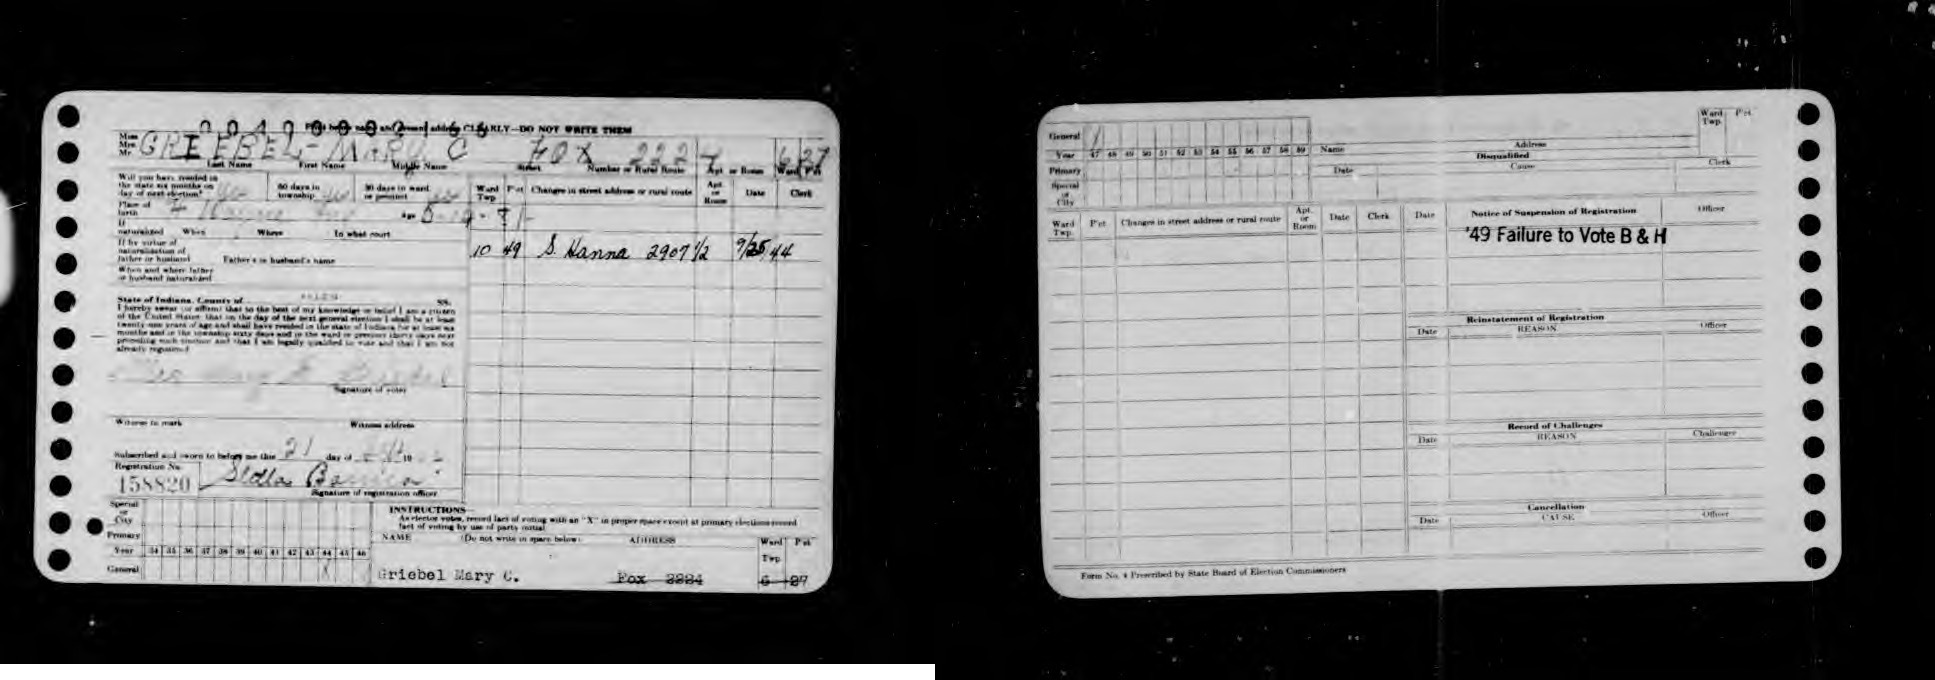 CLEARLY—DO NOT WRITE THEM
Miss
Mrs.
Mr.
GRIEBEL - MARY C FOX 222 6 27
Last Name First Name Middle Name Street Number or Rural Route Apt. or Room Ward Pct
Will you have resided in
the state six months on
day of next election? 60 days in
township 30 days in ward
or precinct
Ward
Twp. Pct Changes in street address or rural route Apt.
or
Room Date Clerk
Place of
birth Age
If
naturalized When Where In what court
If by virtue of
naturalization of
father or husband Father's or husband's name
10 49 S. Hanna 2907 1/2 9/25/44
When and where father
or husband naturalized
State of Indiana, County of SS.
I hereby swear (or affirm) that to the best of my knowledge or belief I am a citizen
of the United States; that on the day of the next general election I shall be at least
twenty-one years of age and shall have resided in the state of Indiana for at least six
months and in the township sixty days and in the ward or precinct thirty days next
preceding such election and that I am legally qualified to vote and that I am not
already registered
Signature of voter
Witness to mark Witness address
Subscribed and sworn to before me this 21 day of 19
Registration No.
158820 Stella
Signature of registration officer
Special
or
City
Primary
Year 34 35 36 37 38 39 40 41 42 43 44 45 46
General X
INSTRUCTIONS
As elector votes, record fact of voting with an "X" in proper space except at primary elections record
fact of voting by use of party initial
NAME (Do not write in space below) ADDRESS Ward
Twp. Pct
Griebel Mary C. Fox 2224 6 27
General
Year 47 48 49 50 51 52 53 54 55 56 57 58 59
Primary
Special
or
City
Name Address Ward
Twp. Pct.
Disqualified
Date Cause Clerk
Ward
Twp. Pct Changes in street address or rural route Apt.
or
Room Date Clerk
Date Notice of Suspension of Registration Officer
'49 Failure to Vote B & H
Reinstatement of Registration
Date REASON Officer
Record of Challenges
Date REASON Challenger
Cancellation
Date CAUSE Officer
Form No. 4 Prescribed by State Board of Election Commissioners